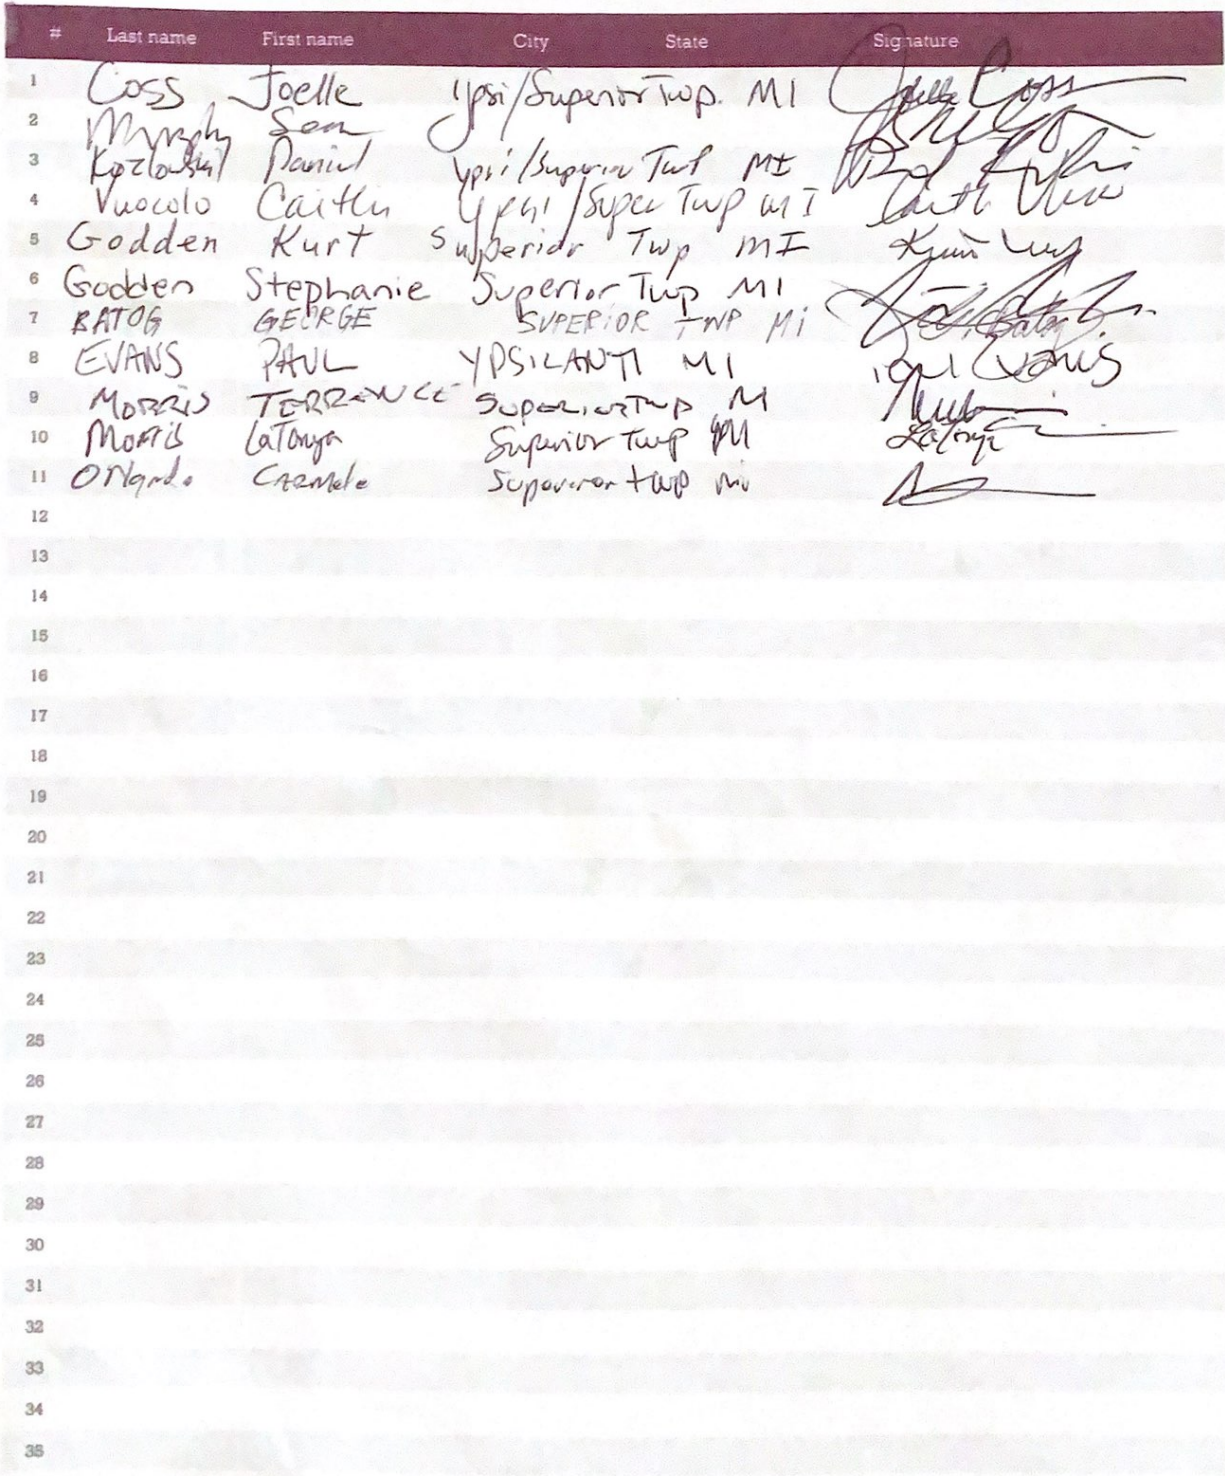 # Last name First name City State Signature
1 Coss Joelle Ypsi/Superior Twp. MI Joelle Coss
2 Murphy Sean
3 Kozlowski Daniel Ypsi/Superior Twp MI
4 Vuocolo Caitlin Ypsi/Super Twp MI
5 Godden Kurt Superior Twp MI
6 Godden Stephanie Superior Twp MI
7 BATOG GEORGE SUPERIOR TWP Mi
8 EVANS PAUL YPSILANTI MI Paul Evans
9 MORRIS TERRENCE Superior Twp MI
10 Morris LaTonya Superior Twp MI LaTonya
11 Orlando Carmelo Superior twp mi
12
13
14
15
16
17
18
19
20
21
22
23
24
25
26
27
28
29
30
31
32
33
34
35